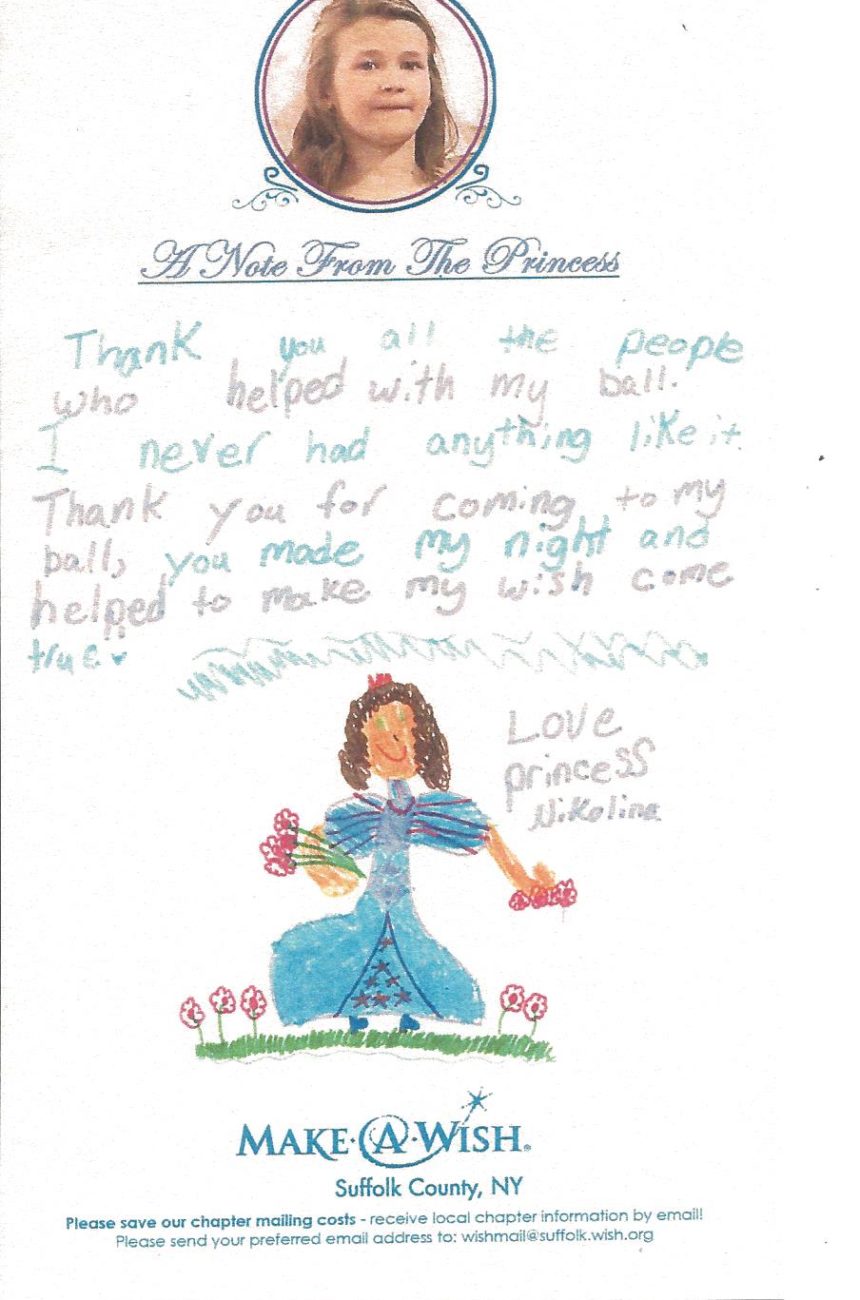 A Note From The Princess
Thank you all the people
who helped with my ball.
I never had anything like it.
Thank you for coming to my
ball, you made my night and
helped to make my wish come
true.
Love
princess
Nikolina
MAKE·A·WISH®
Suffolk County, NY
Please save our chapter mailing costs - receive local chapter information by email!
Please send your preferred email address to: wishmail@suffolk.wish.org